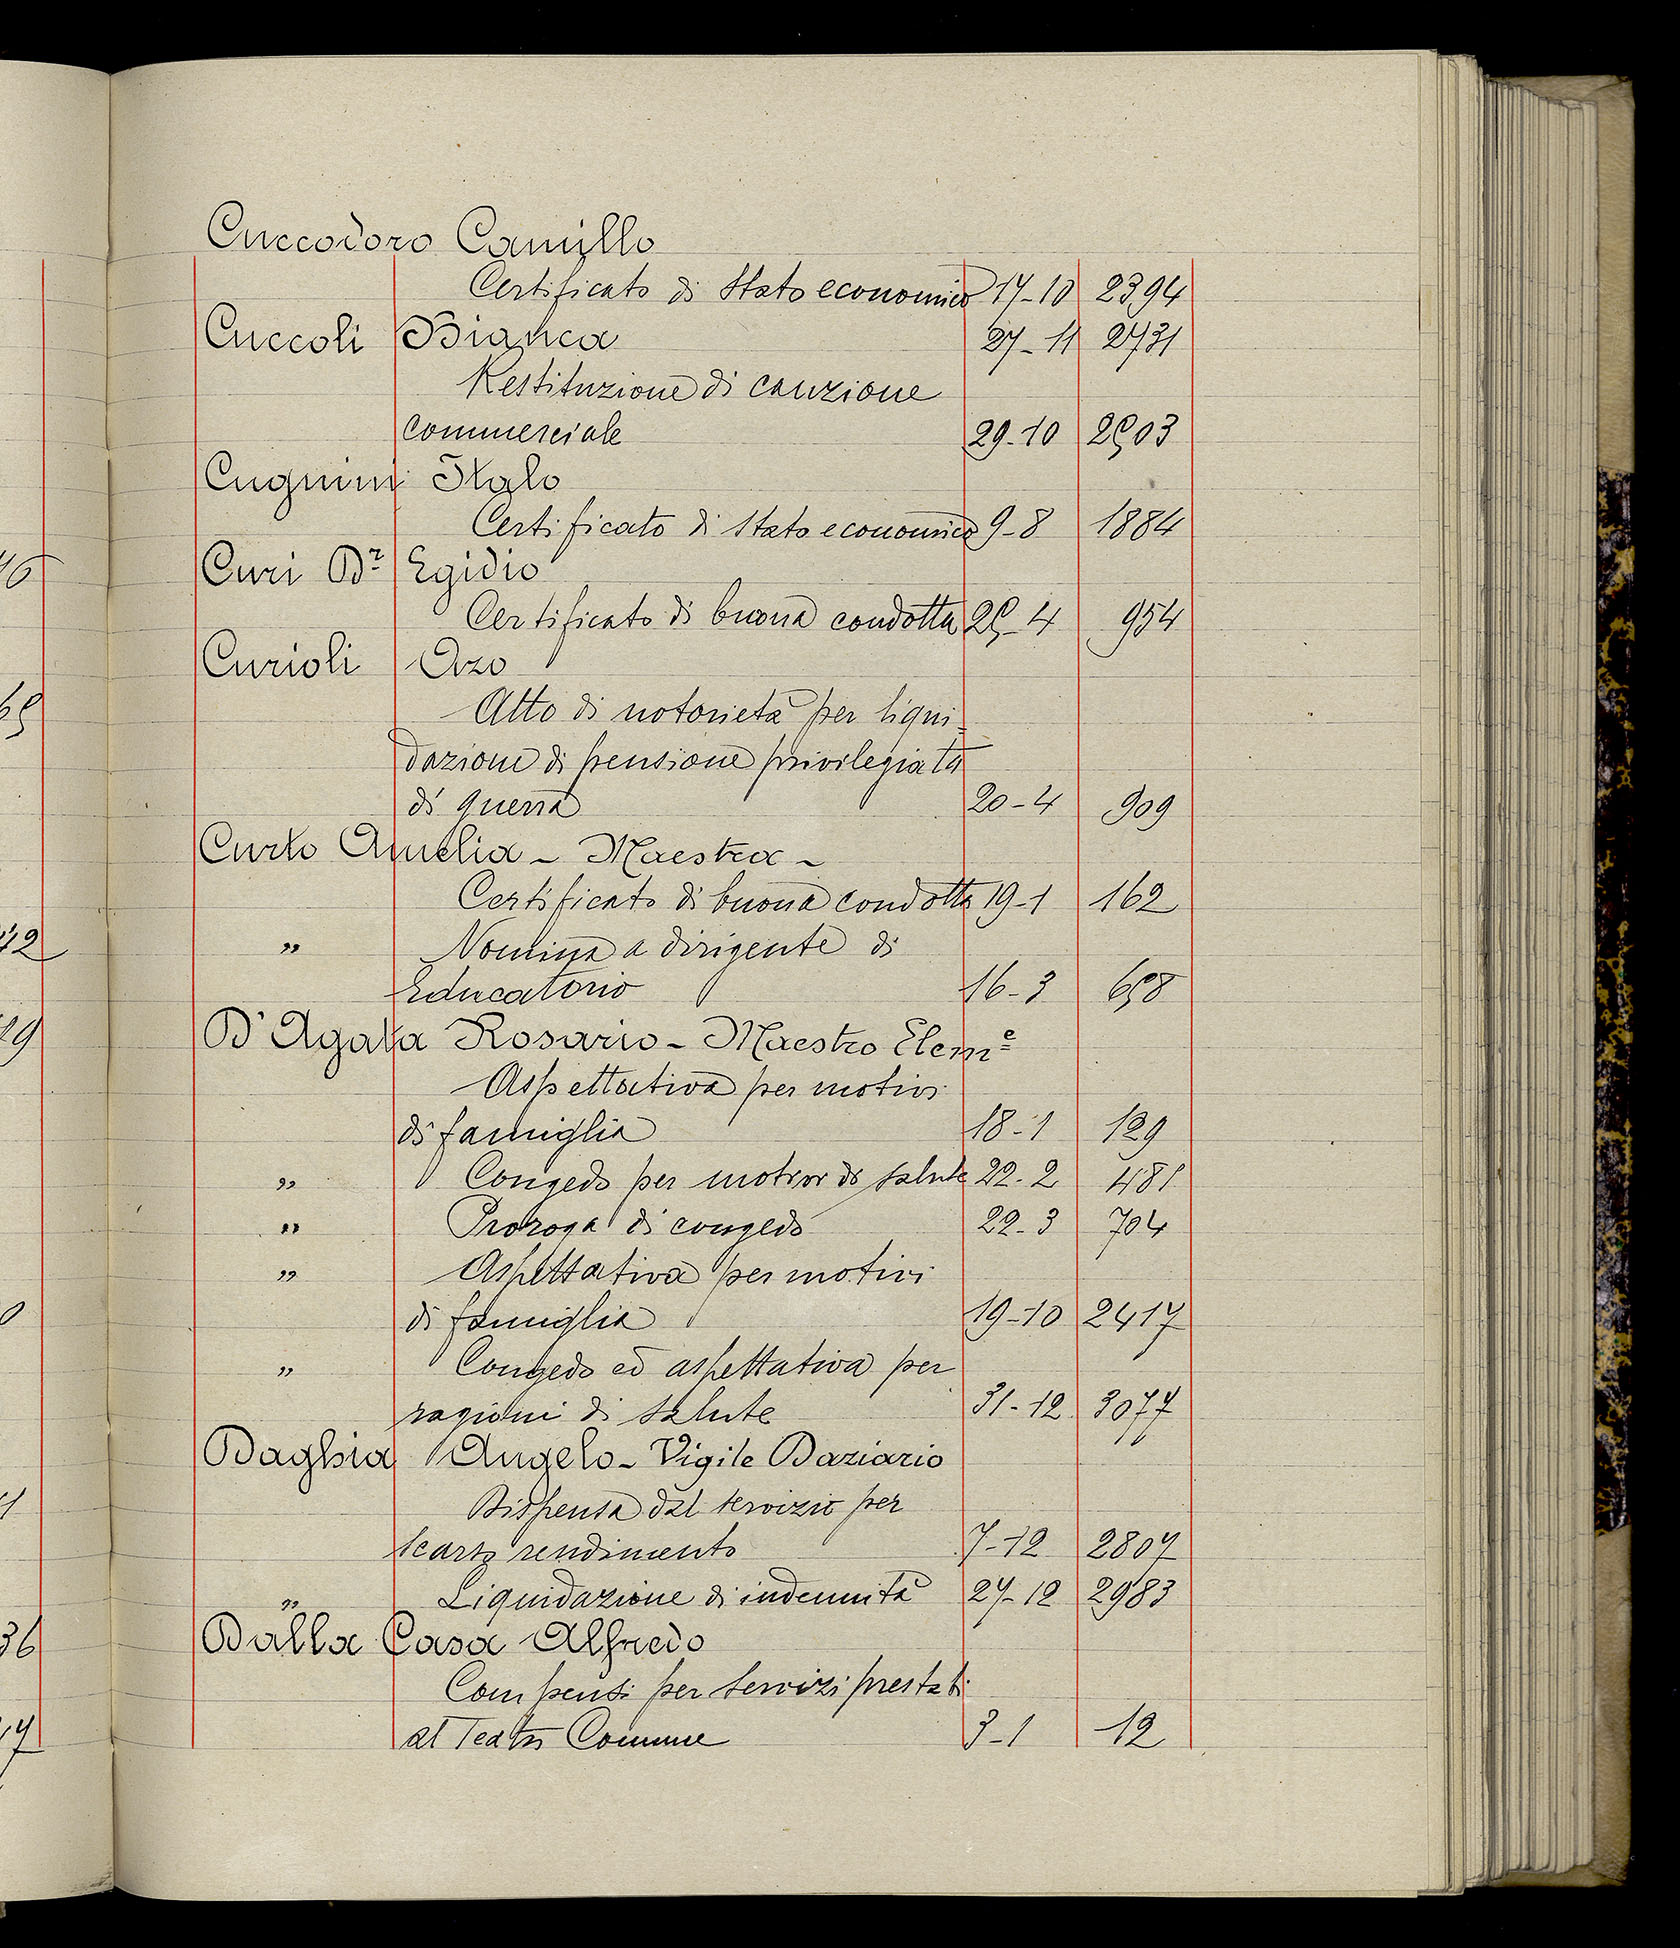 Cuccodoro Camillo
Certificato di Stato economico 17-10 2394
Cuccoli Bianca 27-11 2731
Restituzione di cauzione
commerciale 29-10 2503
Cugnini Italo
Certificato di Stato economico 9-8 1884
Curi Dr Egidio
Certificato di buona condotta 25-4 954
46
Curioli Azo
Atto di notorietà per liqui-
65
dazione di pensione privilegiata
di guerra 20-4 909
Curto Amelia - Maestra -
Certificato di buona condotta 19-1 162
" Nomina a dirigente di
42
Educatorio 16-3 658
D'Agata Rosario - Maestro Eleme
29
Aspettativa per motivi
di famiglia 18-1 129
" Congedo per motivi di salute 22-2 481
" Proroga di congedo 22-3 704
" Aspettativa per motivi
di famiglia 19-10 2417
0
" Congedo ed aspettativa per
ragioni di salute 31-12 3077
Daghia Angelo - Vigile Daziario
Dispensa dal servizio per
1
scarso rendimento 7-12 2807
" Liquidazione di indennità 27-12 2983
Dalla Casa Alfredo
36
Compensi per servizi prestati
al Teatro Comune 3-1 12
17